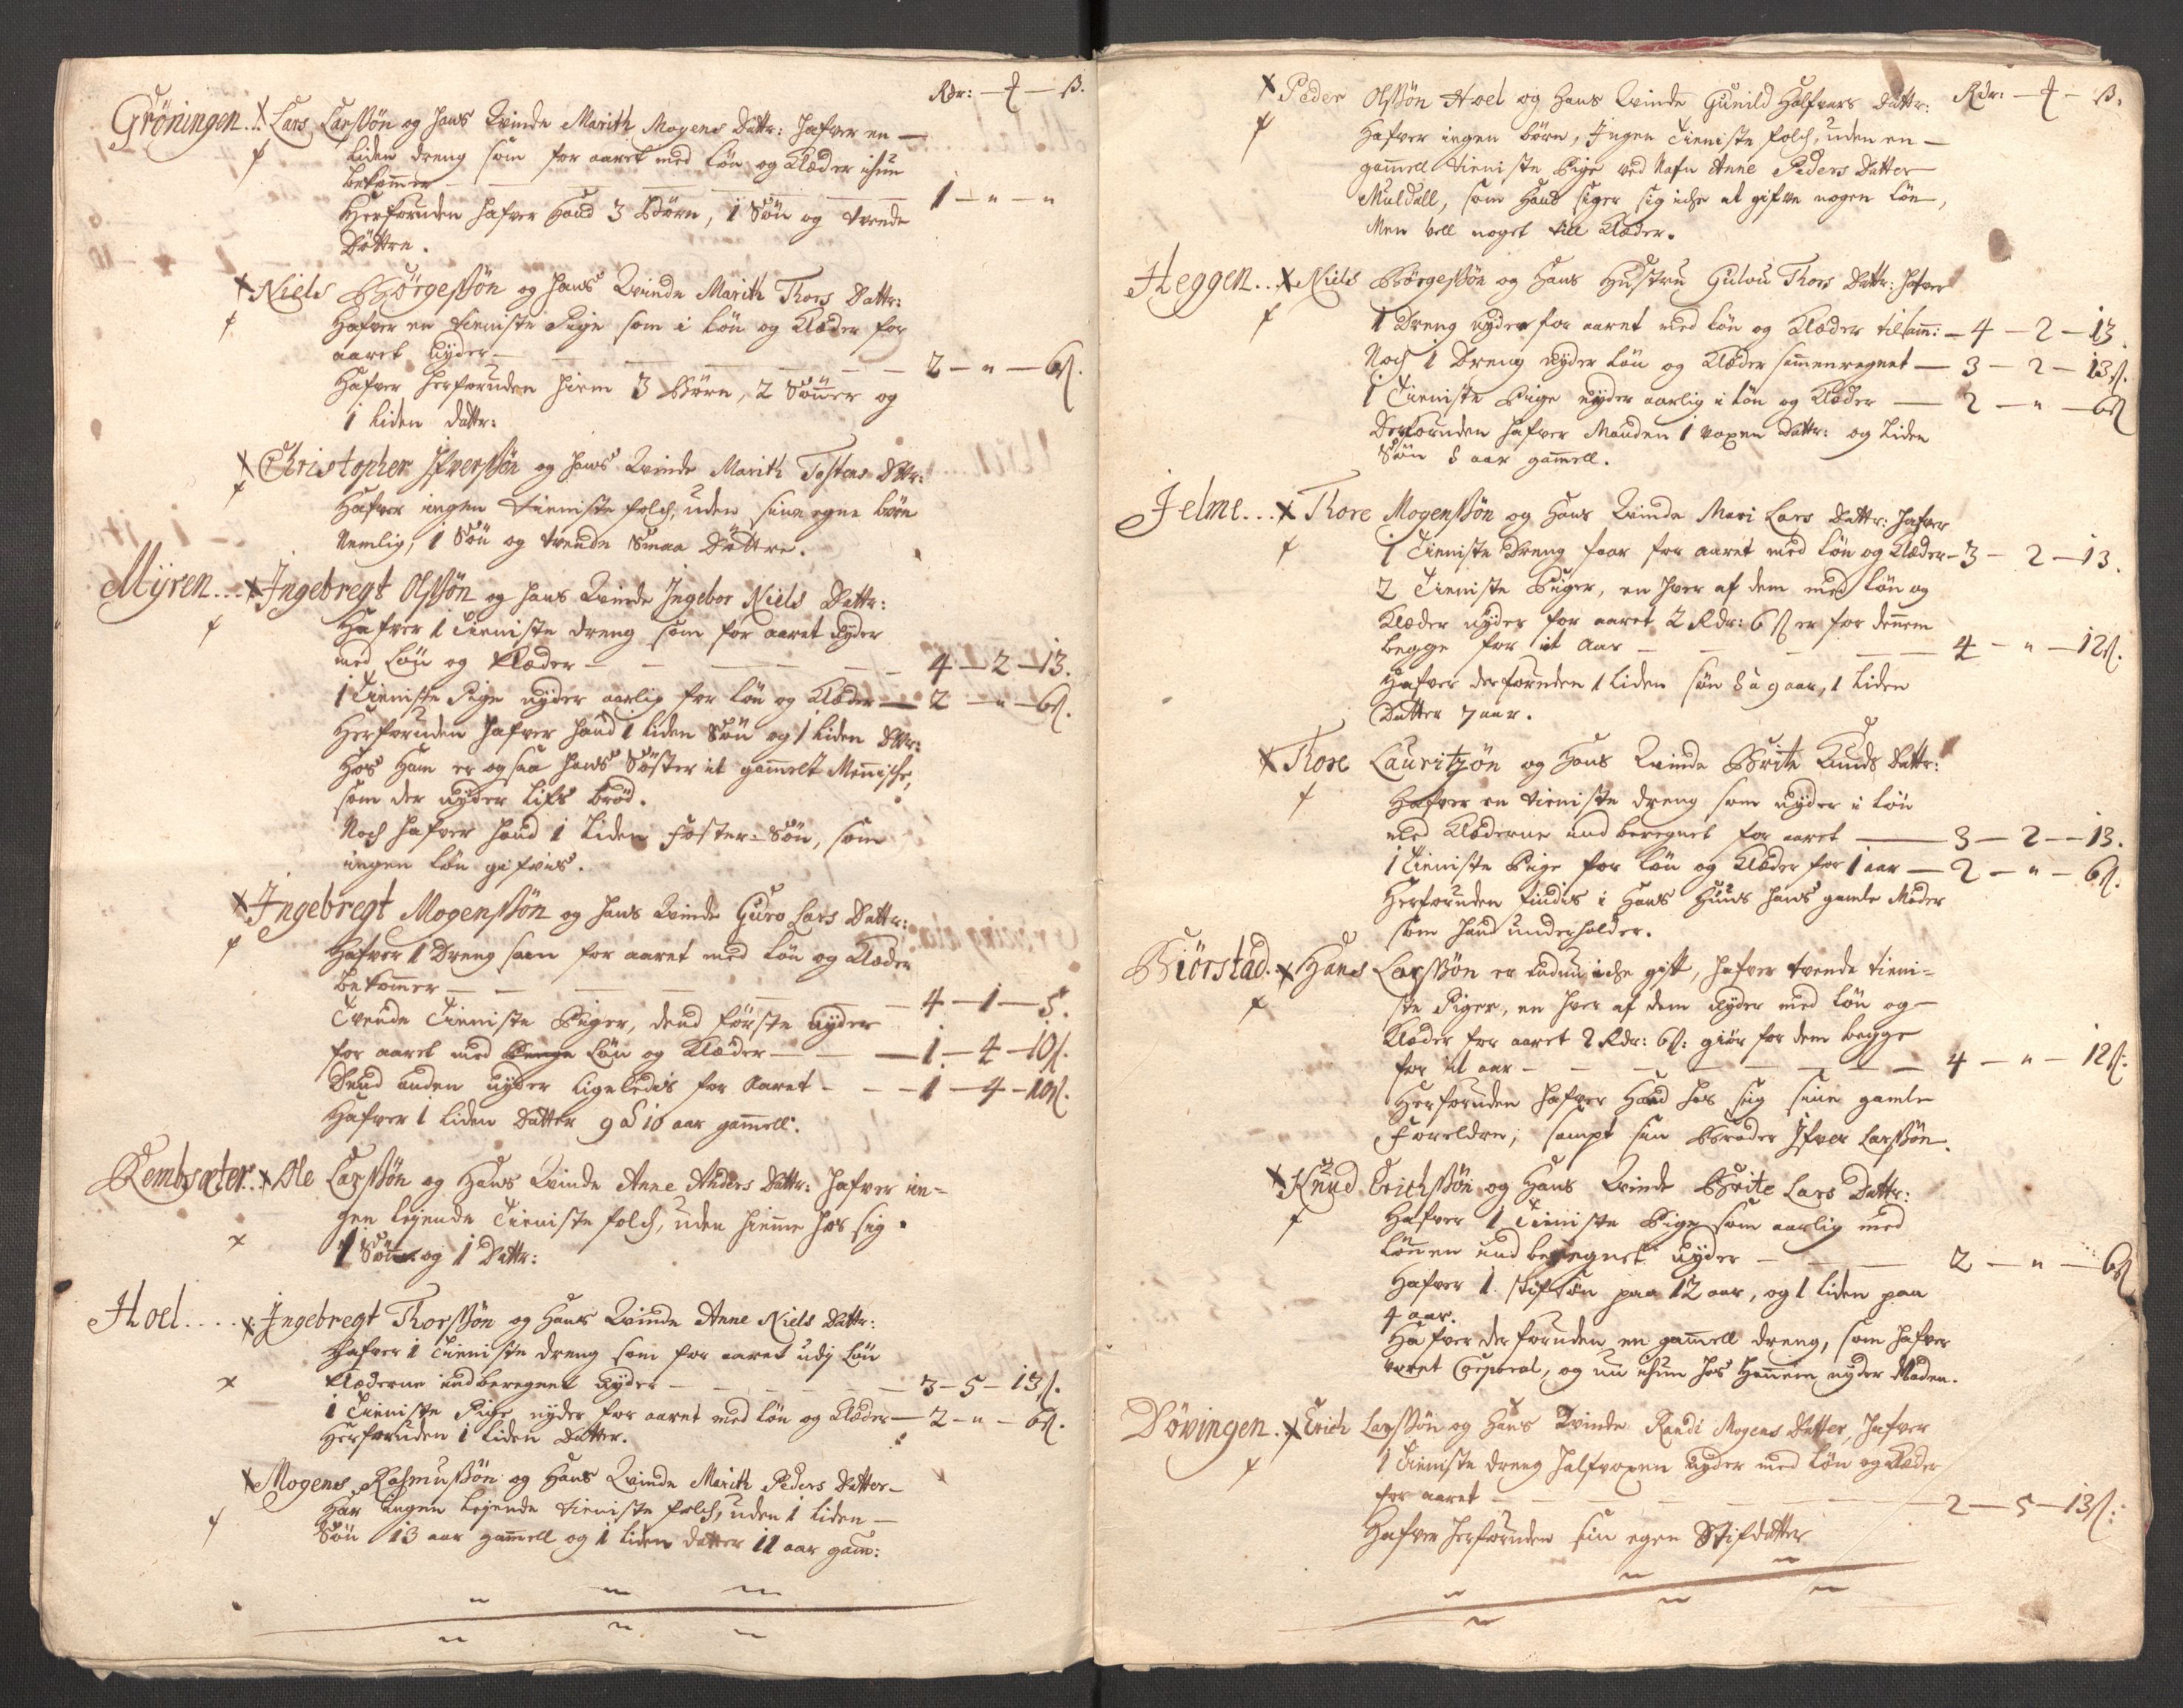 Rdr: — ₰ — ß.
Gröningen.. Lars Larssön og hans Qvinde Marith Mogens Dattr: hafver en —
liden dreng som for aaret med Løn og Klæder ichun
bekommer — — — — 1 — " — "
Herforuden hafver hand 3 Børn, 1 Søn og tvende
Døttre.
Niels Börgessön og hans Qvinde Marith Thors Dattr:
Hafver en tieniste Pige som i Løn og Klæder for
aaret nyder — — — — 2 — " — 6ß.
Hafver herforuden hiem 3 Børn, 2 Sønner og
1 liden dattr:
Christopher Ifverssön og hans Qvinde Marith Tostens Dttr:
Hafver ingen tieniste folch, uden sine egne børn
Nemlig, 1 Søn og tvende smaa Døttre.
Mÿren... Ingebregt Olssön og hans Qvinde Ingebor Niels Dattr:
Hafver 1 tieniste dreng som for aaret nyder
med Løn og Klæder — — — — 4 — 2 — 13.
1 Tieniste Pige nyder aarlig for Løn og Klæder — 2 — " — 6ß.
Herforuden hafver hand 1 liden Søn og 1 liden Dttr:
Hos ham er ogsaa hans Søster it gammelt Mennische,
som der nyder lifs brød.
Noch hafver hand 1 liden Foster-Søn, som
ingen Løn gifves.
Ingebregt Mogenssön og hans Qvinde Guro Lars Dattr:
Hafver 1 Dreng som for aaret med Løn og Klæder
bekommer — — — — 4 — 1 — 5.
Tvende Tieniste Piger, dend første nyder
for aaret med Løn og Klæder — — 1 — 4 — 10ß.
Dend anden nyder ligeledis for Aaret — — 1 — 4 — 10ß.
Hafver 1 liden Datter 9 à 10 aar gammell.
Rembsæter.. Ole Larssön og Hans Qvinde Anne Anders Dattr: hafver in-
gen lejende Tieniste folch, uden hiemme hos sig
1 Søn og 1 Dattr:
Hoel..... Ingebregt Thorssön og Hans Qvinde Anne Niels Dattr:
Hafver 1 Tieniste dreng som for aaret udj Løn
Klæderne indberegnet nyder — — — 3 — 5 — 13ß.
1 Tieniste Pige nyder for aaret med Løn og Klæder — 2 — " — 6ß.
Herforuden 1 liden Datter.
Mogens Rasmussön og Hans Qvinde Marith Peders Datter
Har ingen lejende tieniste folch, uden 1 liden —
Søn 13 aar gammell og 1 liden datter 11 aar gam:
Rdr: — ₰ — ß.
Peder Olssön Hoel og Hans Qvinde Gunild Halfvars Dattr:
Hafver ingen børn, Ingen Tieniste folch, uden en —
gammell tieniste Pige ved Nafn Anne Peders Datter
Muldall, som Hand siger sig iche at gifve nogen Løn,
Men vell noget till Klæder.
Heggen... Niels Börgessön og Hans Hustru Gulou Thors Dattr: hafver
1 Dreng nyder for aaret med Løn og Klæder tilsam: — 4 — 2 — 13.
Noch 1 Dreng nyder Løn og Klæder sammenregnet — 3 — 2 — 13ß.
1 Tieniste Pige nyder aarlig i Løn og Klæder — 2 — " — 6ß
Derforuden hafver Manden 1 voxen dattr: og liden
Søn 8 aar gammell.
Jelme... Thore Mogenssön og Hans Qvinde Mari Lars Dattr: hafver
1 Tieniste Dreng faar for aaret med Løn og Klæder — 3 — 2 — 13.
2 Tieniste Piger, en hver af dem med Løn og
Klæder nyder for aaret 2 Rdr: 6ß er for dennem
begge for it Aar — — — 4 — " — 12ß.
Hafver derforuden 1 liden søn 8 a 9 aar, 1 liden
Datter 7 aar.
Thore Lauritzön og Hans Qvinde Brite Knuds Dattr:
Hafver en tieniste dreng som nyder i Løn
med Klæderne indberegnet for aaret — 3 — 2 — 13.
1 Tieniste Pige for Løn og Klæder for 1 aar — 2 — " — 6ß.
Herforuden findis i Hans Huus hans gamle Moder
som hand underholder.
Biörstad.. Hans Larssön er endnu iche gift, hafver tvende tieni-
ste Piger, en hver af dem nyder med Løn og —
Klæder for aaret 2 Rdr: 6ß: giør for dem begge
for it aar — — — — 4 — " — 12ß:
Herforuden hafver Hand hos sig sine gamle
Foreldre, sampt sin Broder Ifver Larssön.
Knud Erichssön og Hans Qvinde Brite Lars Dattr:
Hafver 1 Tieniste Pige som aarlig med
Lønnen indberegnet nyder — — — 2 — " — 6ß
Hafver 1 stifsøn paa 12 aar, og 1 liden paa
4 aar.
Hafver derforuden en gammell dreng, som hafver
været Corporal, og nu ichun hos Hannem nyder Maden.
Dövingen.. Erich Larssön og Hans Qvinde Randi Mogens Datter, hafver
1 Tieniste dreng halfvoxen nyder med Løn og Klæder
for aaret — — — — 2 — 5 — 13ß:
Hafver herforuden sin egen Stifdatter